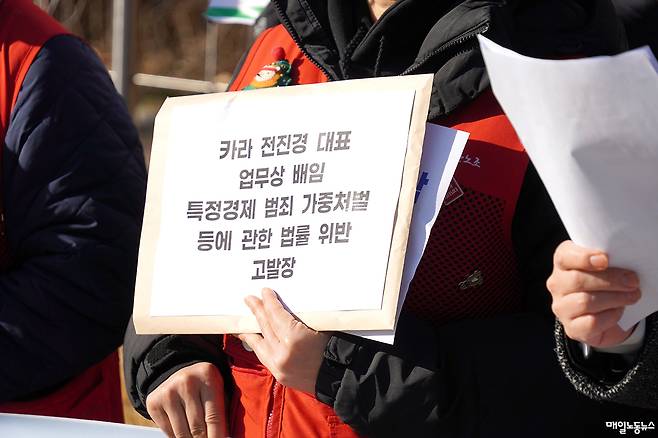 카라 전진경 대표
업무상 배임
특정경제 범죄 가중처벌
등에 관한 법률 위반
고발장
노조
매일노동뉴스